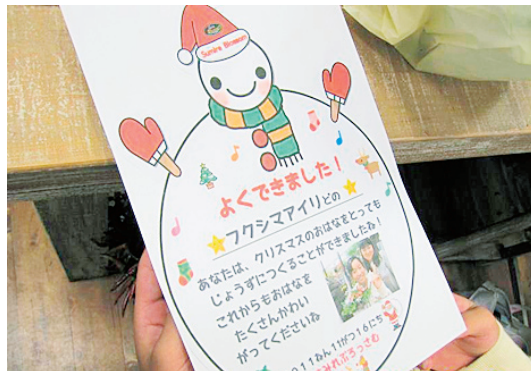 Sumire Blossom
よくできました!
フクシマアイリどの
あなたは、クリスマスのおはなをとっても
じょうずにつくることができましたね!
これからもおはなを
たくさんかわい
がってくださいね
011ねん11がつ16にち
みれぶろっさむ